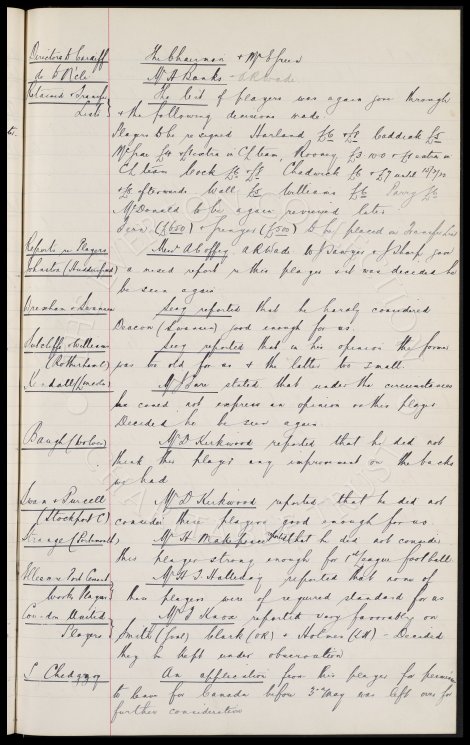 Directors to Cardiff The Chairman + Mr E Green
do to N'cle Mr A Banks - A R Wade
Retained + Transfer The list of players was again gone through
List + the following decisions made
Players to be resigned Harland £6 + £8 Caddick £5
£4 + £1 extra in Cf team, Rooney £3 10 0 + £1 extra in
Cf team Cock £6 + £8 Chadwick £6 + £7 until
+ £8 afterwards Wall £5 Williams £6 Parry £6
McDonald to be again reviewed later
(£650) + (£500) to be placed on Transfer List
Reports re Players Messrs A Coffey A R Wade W Sawyer + J Sharp gave
Johnston (Huddersfield) a mixed report re this player + it was decided he
be seen again
Brewham + Swansea Secy reported that he hardly considered
Deacon (Swansea) good enough for us.
Sutcliffe + Williams Secy reported that in his opinion the former
(Rotherham) was too old for us + the latter too small
Kendall (Lincoln) Mr J stated that under the circumstances
he could not express an opinion on this player
Decided he be seen again
Baugh (Wolves) Mr D Kirkwood reported that he did not
think this player any improvement on the backs
we had
Swan + Purcell Mr D Kirkwood reported that he did not
(Stockport C) consider these players good enough for us.
Strange (Portsmouth) Mr H Makepeace stated that he did not consider
this player strong enough for 1st league football
Ellesmere Port Cement Mr H J Halliday reported that none of
Works Players their players were of required standard for us
Connahs United Mr J Knox reported very favourably on
Players Smith (goal) Clark (OR) + Holmes - Decided
they be kept under observation
S Chedgzoy An application from this player for permission
to leave for Canada before 3rd May was left over for
further consideration